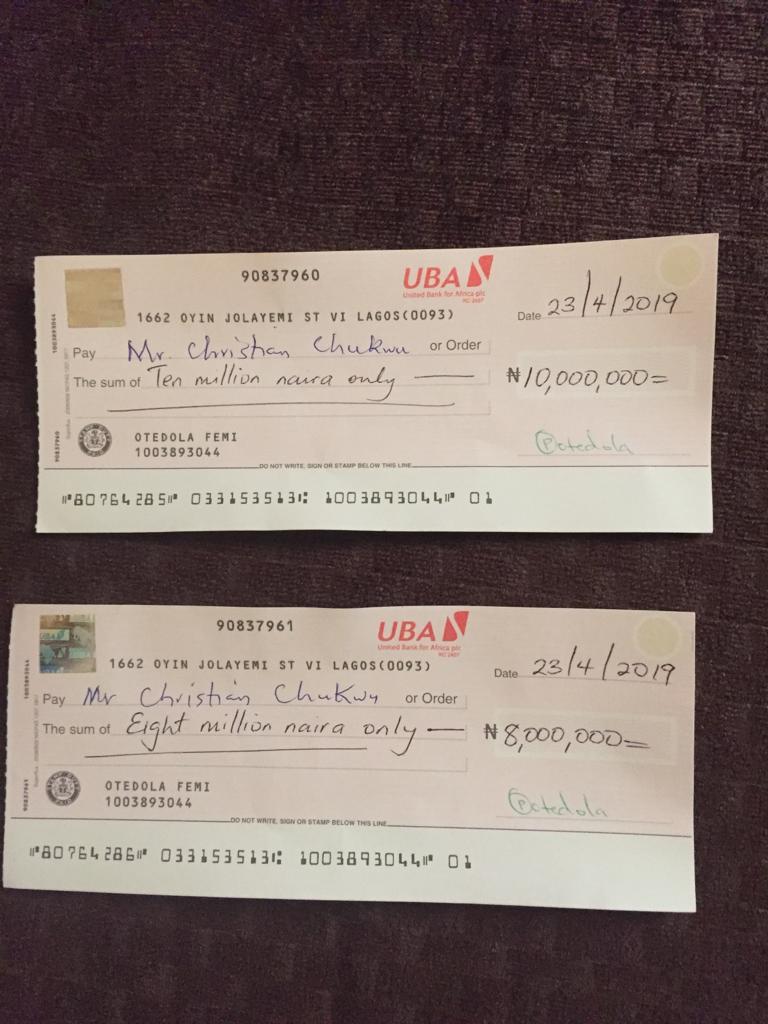 90837960
UBA
United Bank for Africa plc
RC 2457
1662 OYIN JOLAYEMI ST VI LAGOS(0093)
Date 23/4/2019
Pay Mr. Christian Chukwu or Order
The sum of Ten million naira only
₦10,000,000=
1003893044
90837960
OTEDOLA FEMI
1003893044
Otedola
DO NOT WRITE, SIGN OR STAMP BELOW THIS LINE
⑈80764285⑈ 033153513⑆ 1003893044⑈ 01
90837961
UBA
United Bank for Africa plc
RC 2457
1662 OYIN JOLAYEMI ST VI LAGOS(0093)
Date 23/4/2019
Pay Mr Christian Chukwu or Order
The sum of Eight million naira only
₦8,000,000=
1003893044
90837961
OTEDOLA FEMI
1003893044
Otedola
DO NOT WRITE, SIGN OR STAMP BELOW THIS LINE
⑈80764286⑈ 033153513⑆ 1003893044⑈ 01